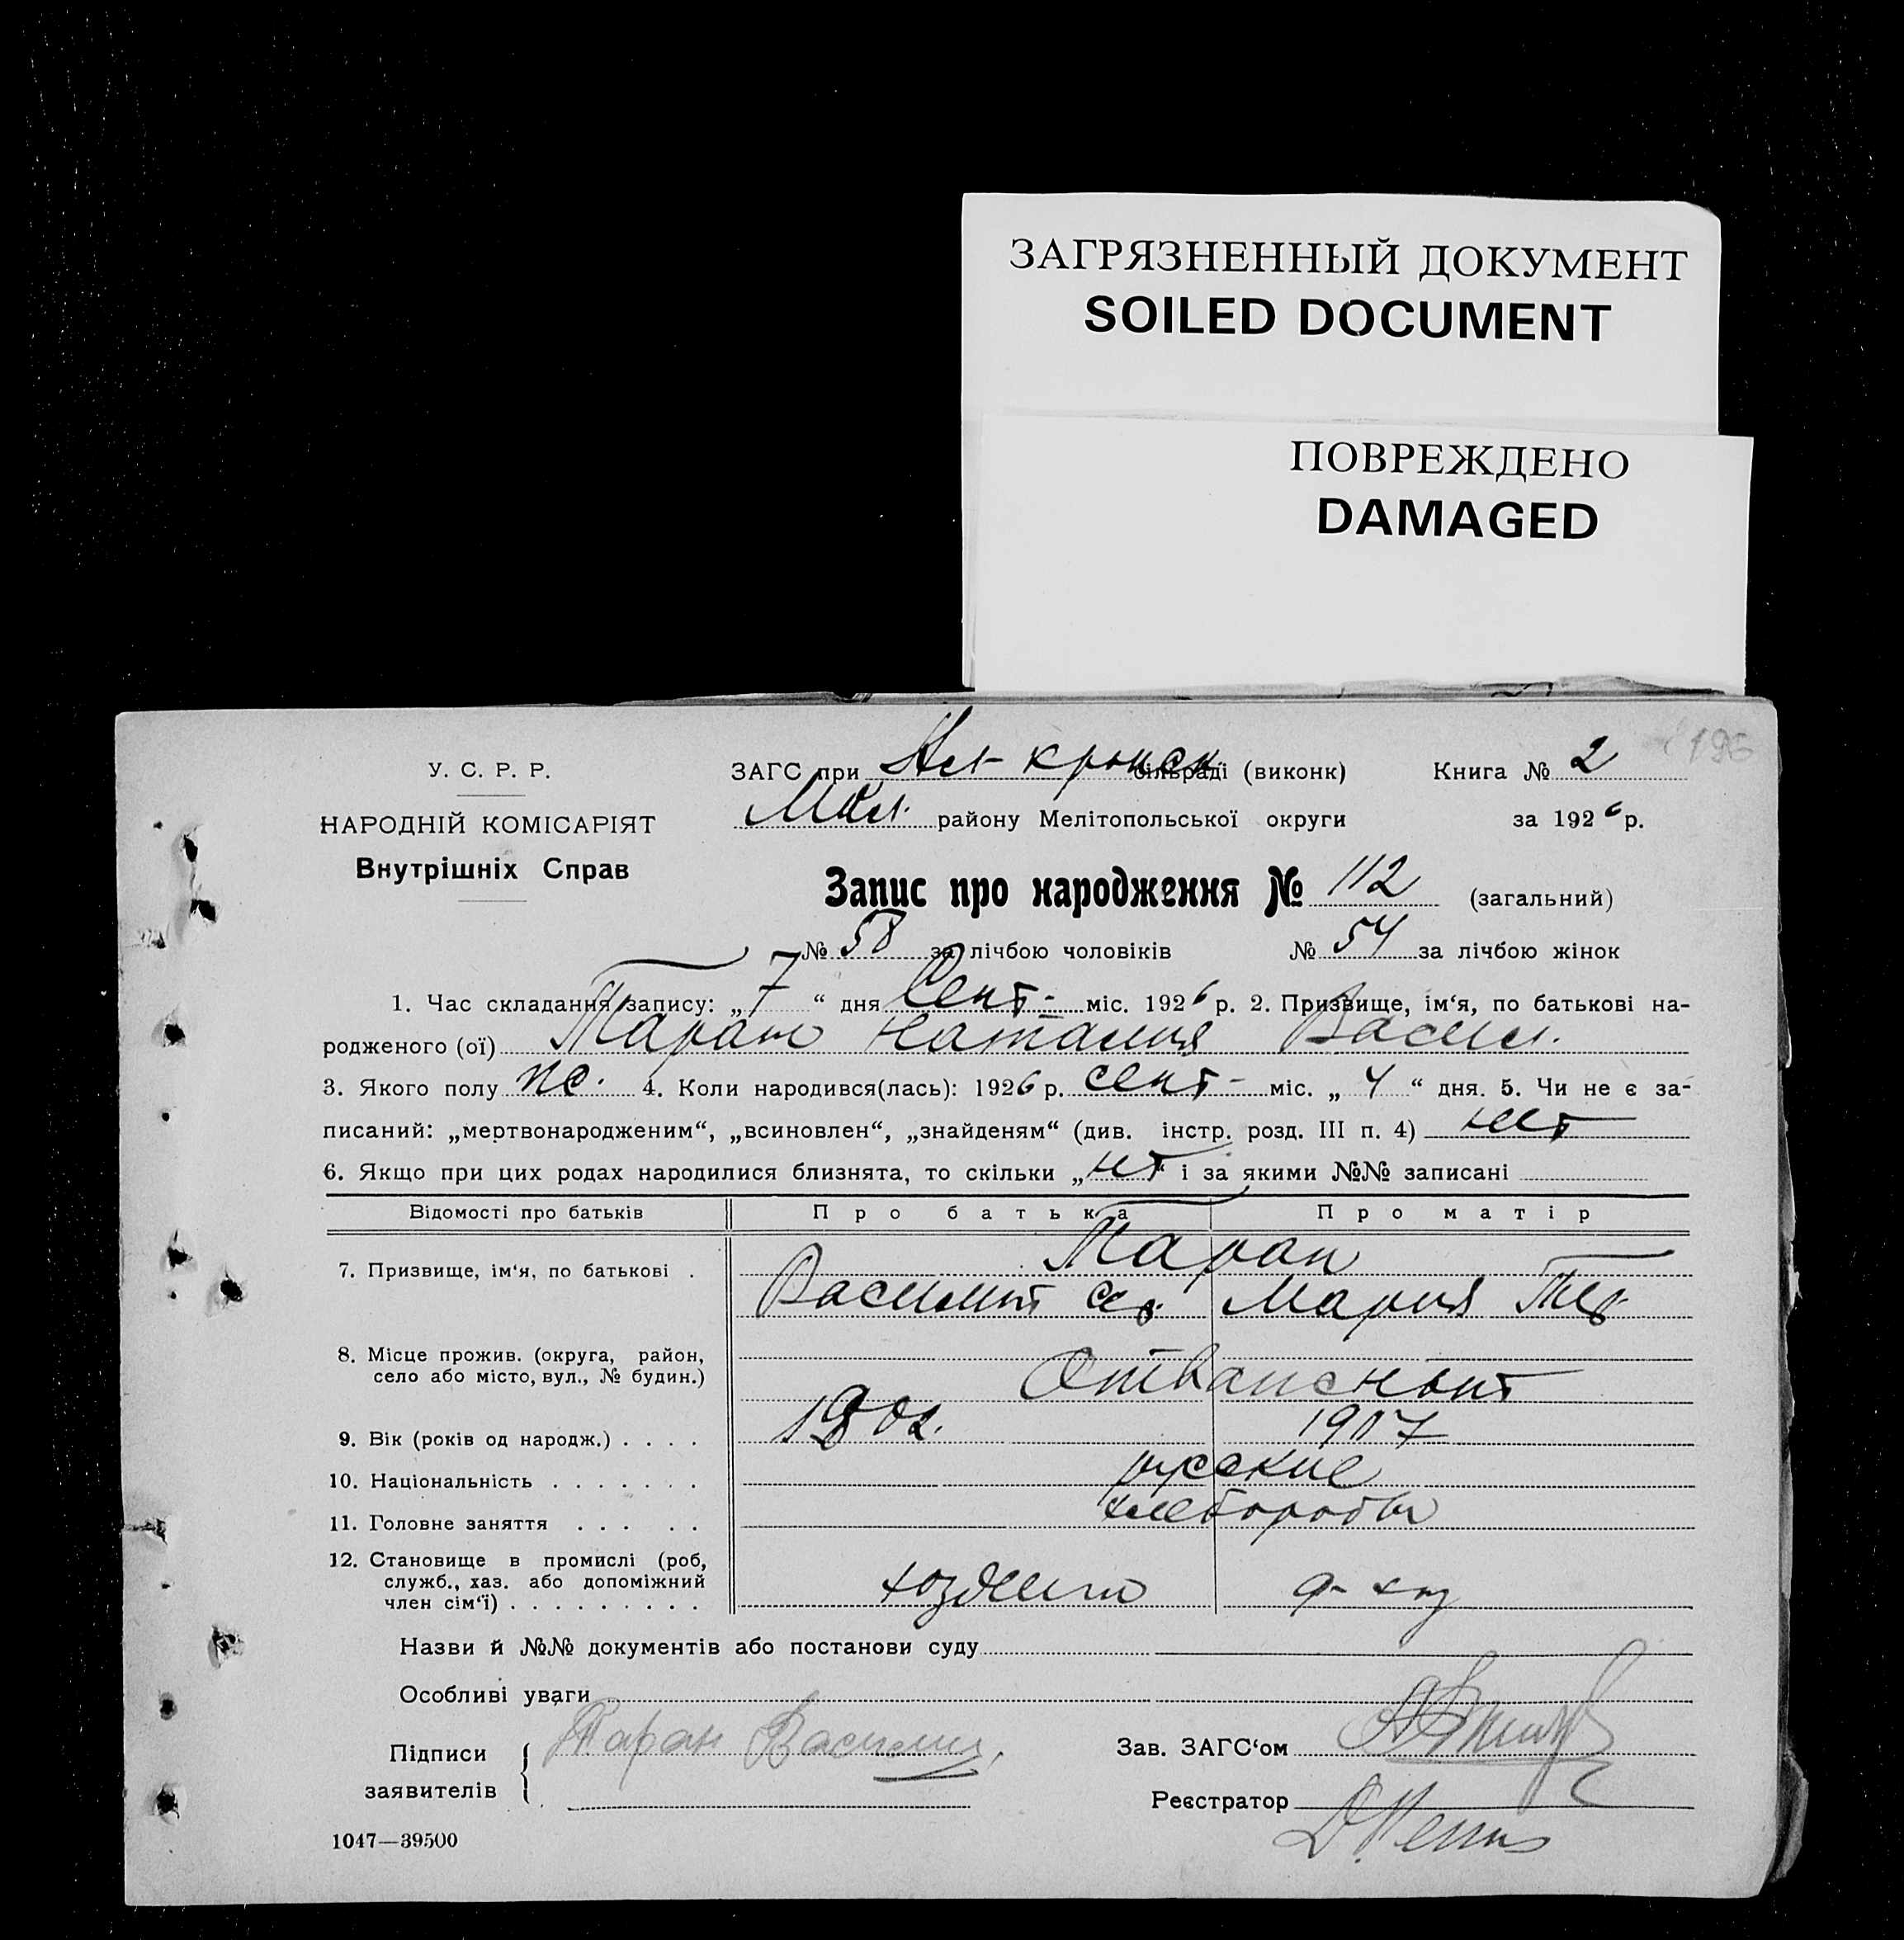 ЗАГРЯЗНЕННЫЙ ДОКУМЕНТ
SOILED DOCUMENT
ПОВРЕЖДЕНО
DAMAGED
У. С. Р. Р.
НАРОДНІЙ КОМІСАРІЯТ
Внутрішніх Справ
ЗАГС при сільраді (виконк) Книга № 2
району Мелітопольської округи за 1926 р.
Запис про народження № 112 (загальний)
№ 58 за лічбою чоловіків № 54 за лічбою жінок
1. Час складання запису: „7“ дня Сент- міс. 1926 р. 2. Призвище, ім‘я, по батькові на-
родженого (ої) Таран Наталия Васил.
3. Якого полу 4. Коли народився(лась): 1926 р. сент- міс. „4“ дня. 5. Чи не є за-
писаний: „мертвонародженим“, „всиновлен“, „знайденям“ (див. інстр. розд. III п. 4) нет
6. Якщо при цих родах народилися близнята, то скільки „нет“ і за якими №№ записані
Відомості про батьків Про батька Про матір
7. Призвище, ім‘я, по батькові . Таран
Василий Мария
8. Місце прожив. (округа, район,
село або місто, вул., № будин.)
9. Вік (років од народж.) . . . . 1907
10. Національність . . . . . . . русские
11. Головне заняття . . . . . хлеборобы
12. Становище в промислі (роб,
служб., хаз. або допоміжний
член сім‘ї) . . . . . . . . .
Назви й №№ документів або постанови суду
Особливі уваги
Підписи
заявителів
Таран Василий
Зав. ЗАГС‘ом
Реєстратор
1047—39500